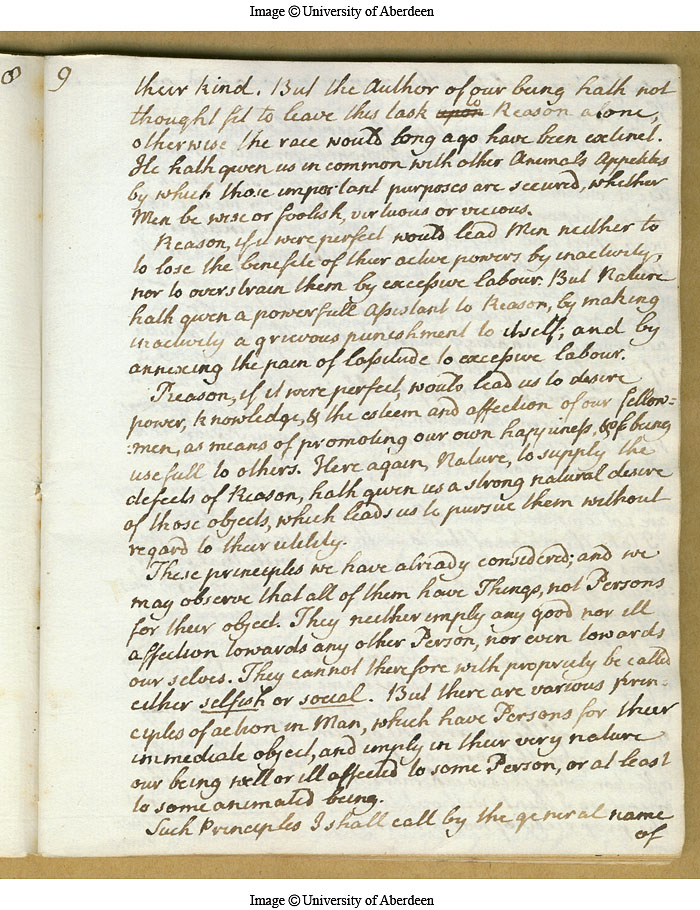 Image © University of Aberdeen
8
9
their kind. But the Author of our being hath not
thought fit to leave this task upon to Reason alone,
otherwise the race would long ago have been extinct.
He hath given us in common with other Animals Appetites
by which those important purposes are secured, whether
Men be wise or foolish, virtuous or vicious.
Reason, if it were perfect would lead Men neither to
to lose the benefite of their active powers by inactivity,
nor to overstrain them by excessive labour. But Nature
hath given a powerfull Assistant to Reason, by making
inactivity a grievous punishment to itself, and by
annexing the pain of lassitude to excessive labour.
Reason, if it were perfect, would lead us to desire
power, knowledge, & the esteem and affection of our fellow=
=men, as means of promoting our own happiness, & of being
usefull to others. Here again, Nature, to supply the
defects of Reason, hath given us a strong natural desire
of those objects, which leads us to pursue them without
regard to their utility.
These principles we have already considered; and we
may observe that all of them have Things, not Persons
for their object. They neither imply any good nor ill
affection towards any other Person, nor even towards
our selves. They cannot therefore with propriety be called
either selfish or social. But there are various prin=
ciples of action in Man, which have Persons for their
immediate object, and imply in their very nature
our being well or ill affected to some Person, or at least
to some animated being.
Such Principles I shall call by the general name
of
Image © University of Aberdeen